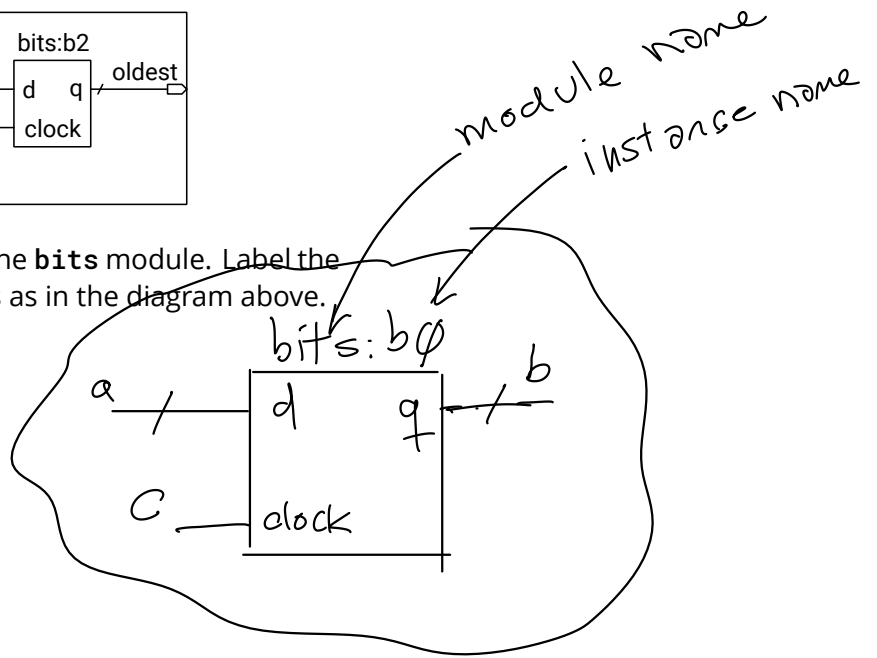 bits:b2
d q oldest
clock
module name
instance name
he bits module. Label the
s as in the diagram above.
bits: bφ
a d q b
C clock